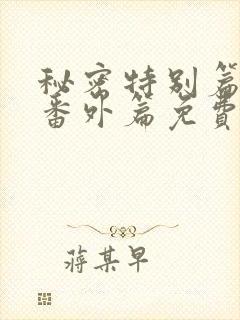 秘密特别篇
番外篇免費
蒋某早